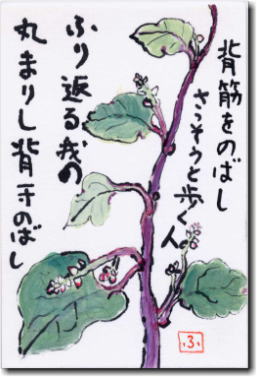 背筋をのばし
さっそうと歩く人
ふり返る我の
丸まりし背すのばし
ふ